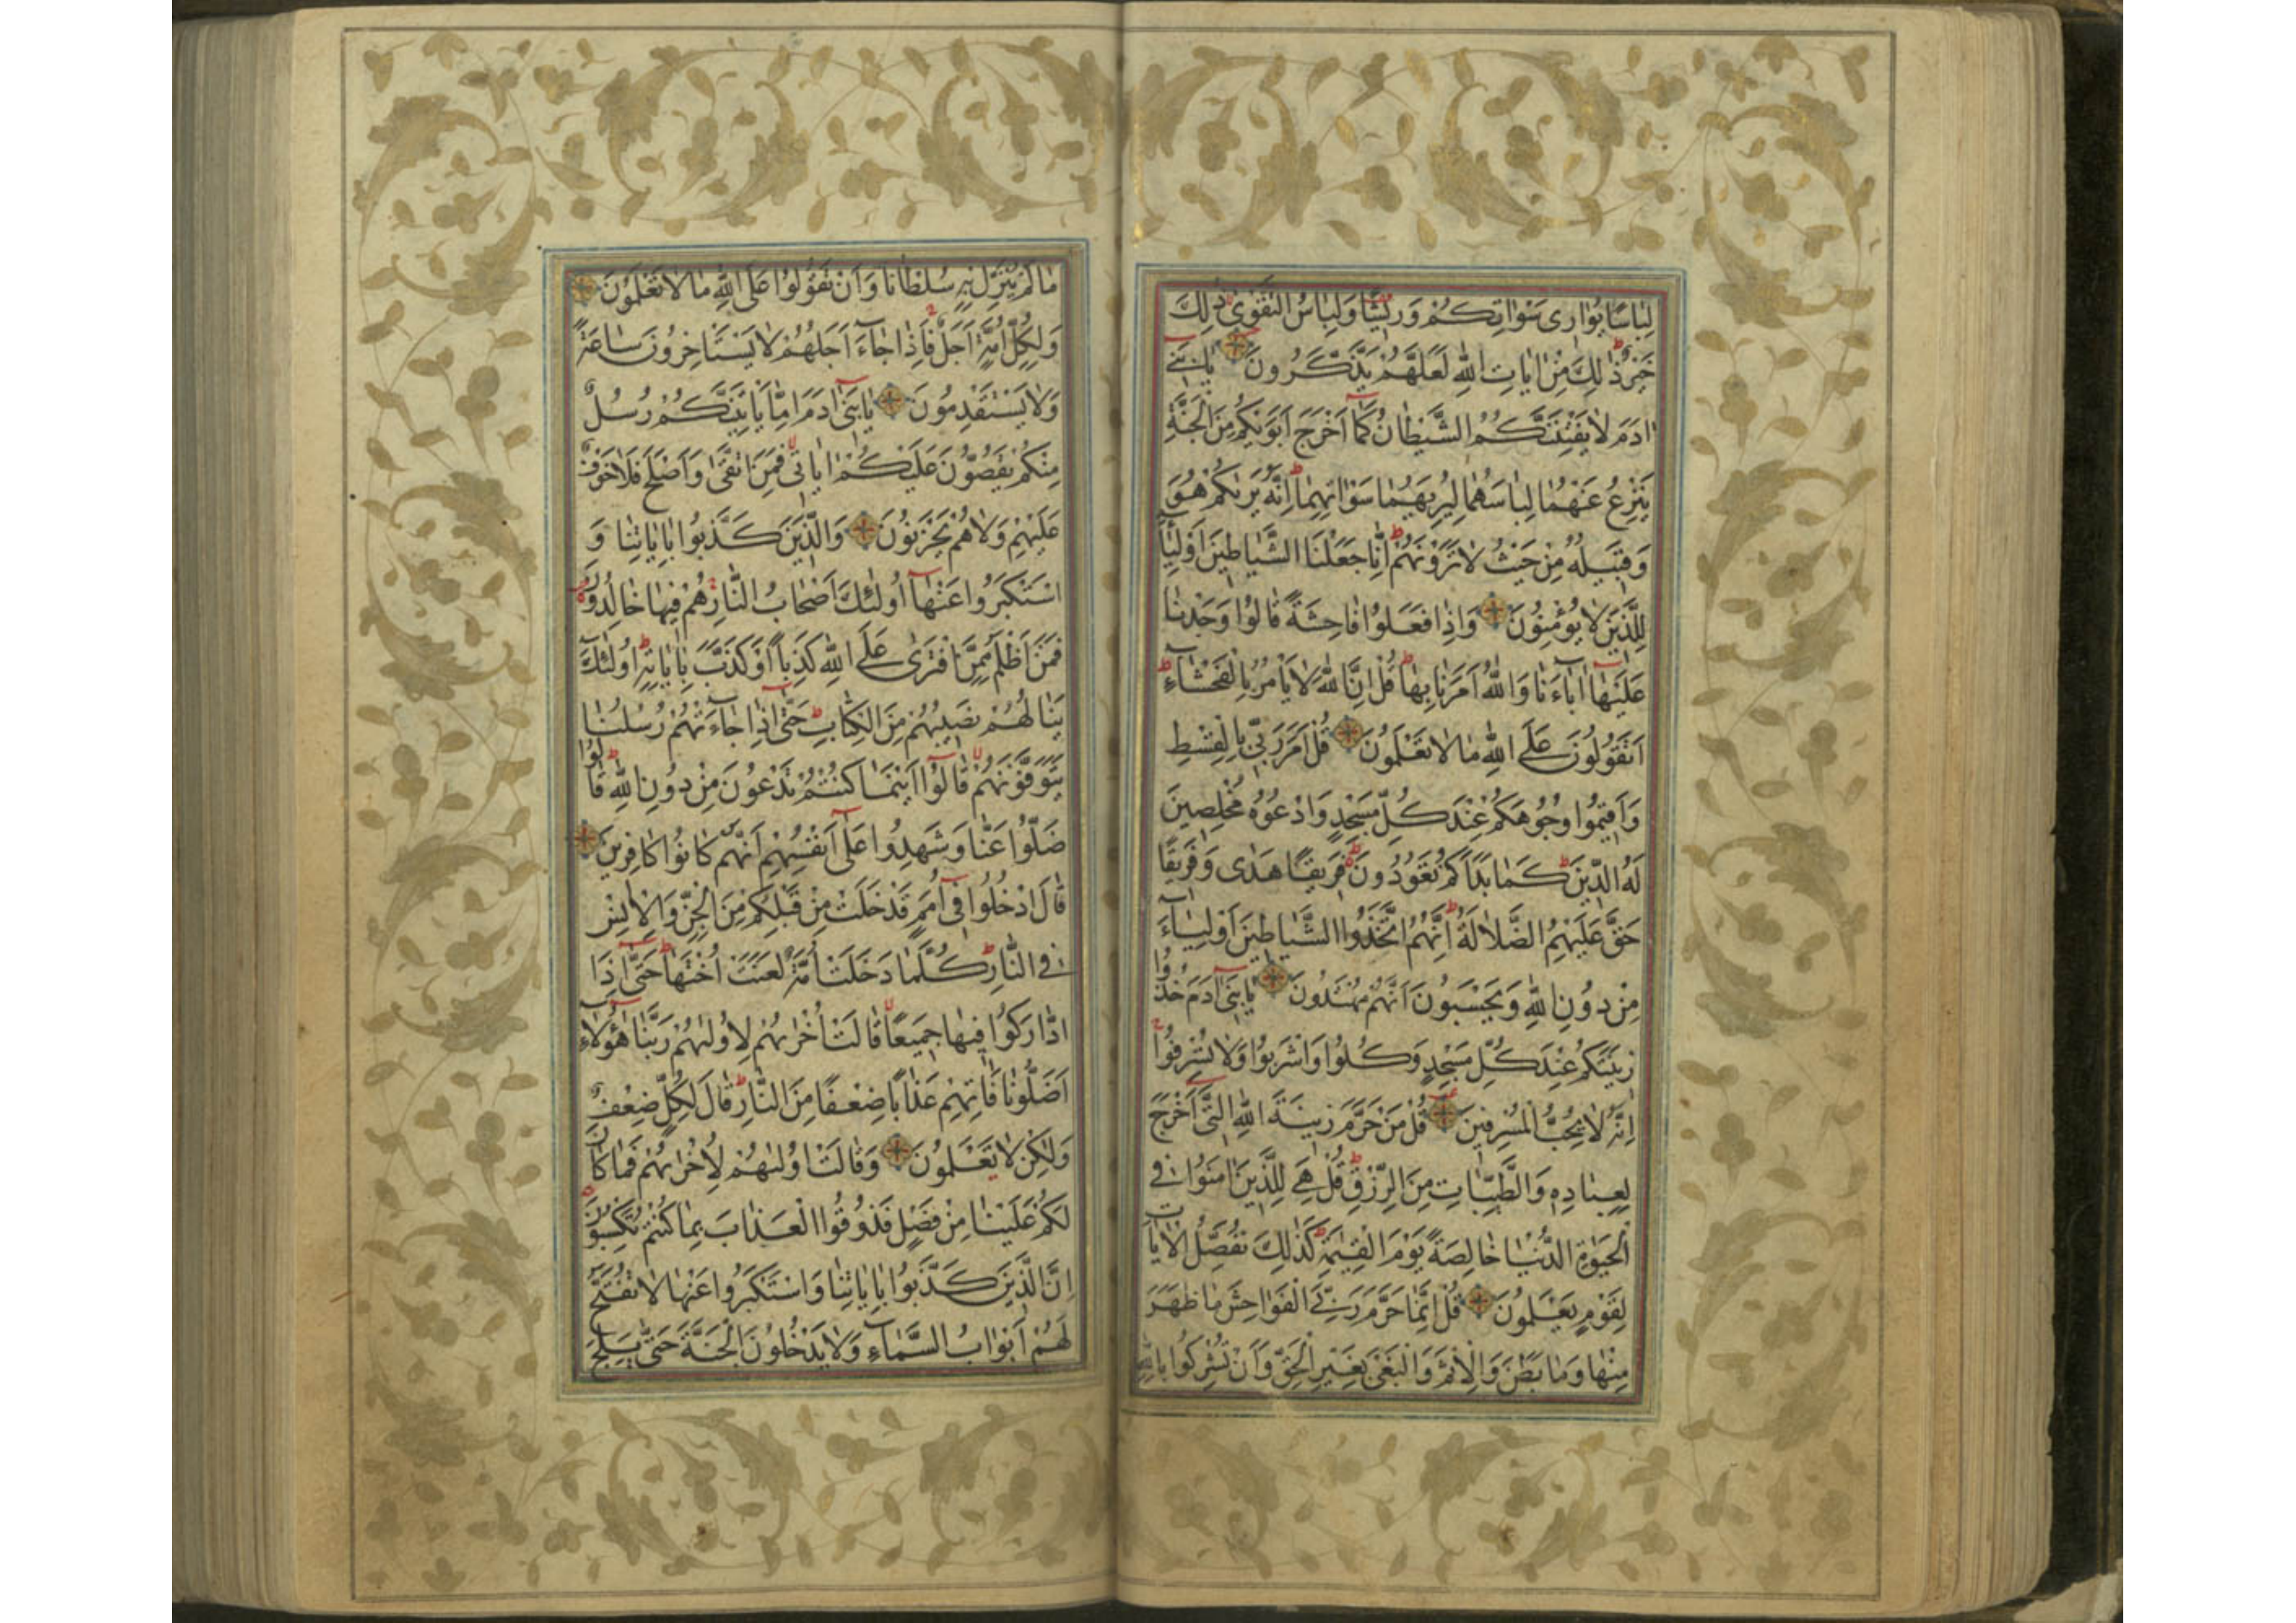 لِبَاسًا يُوَارِى سَوْاٰتِكُمْ وَرِيشًا وَلِبَاسُ التَّقْوٰى ذٰلِكَ
خَيْرٌ ذٰلِكَ مِنْ اٰيَاتِ اللّٰهِ لَعَلَّهُمْ يَذَّكَّرُونَ يَابَنِى
اٰدَمَ لَا يَفْتِنَنَّكُمُ الشَّيْطَانُ كَمَا اَخْرَجَ اَبَوَيْكُمْ مِنَ الْجَنَّةِ
يَنْزِعُ عَنْهُمَا لِبَاسَهُمَا لِيُرِيَهُمَا سَوْاٰتِهِمَا اِنَّهُ يَرٰيكُمْ هُوَ
وَقَبِيلُهُ مِنْ حَيْثُ لَا تَرَوْنَهُمْ اِنَّا جَعَلْنَا الشَّيَاطِينَ اَوْلِيَاءَ
لِلَّذِينَ لَا يُؤْمِنُونَ وَاِذَا فَعَلُوا فَاحِشَةً قَالُوا وَجَدْنَا
عَلَيْهَا اٰبَاءَنَا وَاللّٰهُ اَمَرَنَا بِهَا قُلْ اِنَّ اللّٰهَ لَا يَأْمُرُ بِالْفَحْشَاءِ
اَتَقُولُونَ عَلَى اللّٰهِ مَا لَا تَعْلَمُونَ قُلْ اَمَرَ رَبِّى بِالْقِسْطِ
وَاَقِيمُوا وُجُوهَكُمْ عِنْدَ كُلِّ مَسْجِدٍ وَادْعُوهُ مُخْلِصِينَ
لَهُ الدِّينَ كَمَا بَدَاَكُمْ تَعُودُونَ فَرِيقًا هَدٰى وَفَرِيقًا
حَقَّ عَلَيْهِمُ الضَّلَالَةُ اِنَّهُمُ اتَّخَذُوا الشَّيَاطِينَ اَوْلِيَاءَ
مِنْ دُونِ اللّٰهِ وَيَحْسَبُونَ اَنَّهُمْ مُهْتَدُونَ يَابَنِى اٰدَمَ خُذُوا
زِينَتَكُمْ عِنْدَ كُلِّ مَسْجِدٍ وَكُلُوا وَاشْرَبُوا وَلَا تُسْرِفُوا
اِنَّهُ لَا يُحِبُّ الْمُسْرِفِينَ قُلْ مَنْ حَرَّمَ زِينَةَ اللّٰهِ الَّتِى اَخْرَجَ
لِعِبَادِهِ وَالطَّيِّبَاتِ مِنَ الرِّزْقِ قُلْ هِىَ لِلَّذِينَ اٰمَنُوا فِى
الْحَيٰوةِ الدُّنْيَا خَالِصَةً يَوْمَ الْقِيٰمَةِ كَذٰلِكَ نُفَصِّلُ الْاٰيَاتِ
لِقَوْمٍ يَعْلَمُونَ قُلْ اِنَّمَا حَرَّمَ رَبِّىَ الْفَوَاحِشَ مَا ظَهَرَ
مِنْهَا وَمَا بَطَنَ وَالْاِثْمَ وَالْبَغْىَ بِغَيْرِ الْحَقِّ وَاَنْ تُشْرِكُوا بِاللّٰهِ
مَا لَمْ يُنَزِّلْ بِهِ سُلْطَانًا وَاَنْ تَقُولُوا عَلَى اللّٰهِ مَا لَا تَعْلَمُونَ
وَلِكُلِّ اُمَّةٍ اَجَلٌ فَاِذَا جَاءَ اَجَلُهُمْ لَا يَسْتَأْخِرُونَ سَاعَةً
وَلَا يَسْتَقْدِمُونَ يَابَنِى اٰدَمَ اِمَّا يَأْتِيَنَّكُمْ رُسُلٌ
مِنْكُمْ يَقُصُّونَ عَلَيْكُمْ اٰيَاتِى فَمَنِ اتَّقٰى وَاَصْلَحَ فَلَا خَوْفٌ
عَلَيْهِمْ وَلَا هُمْ يَحْزَنُونَ وَالَّذِينَ كَذَّبُوا بِاٰيَاتِنَا وَ
اسْتَكْبَرُوا عَنْهَا اُولٰئِكَ اَصْحَابُ النَّارِ هُمْ فِيهَا خَالِدُونَ
فَمَنْ اَظْلَمُ مِمَّنِ افْتَرٰى عَلَى اللّٰهِ كَذِبًا اَوْ كَذَّبَ بِاٰيَاتِهِ اُولٰئِكَ
يَنَالُهُمْ نَصِيبُهُمْ مِنَ الْكِتَابِ حَتّٰى اِذَا جَاءَتْهُمْ رُسُلُنَا
يَتَوَفَّوْنَهُمْ قَالُوا اَيْنَمَا كُنْتُمْ تَدْعُونَ مِنْ دُونِ اللّٰهِ قَالُوا
ضَلُّوا عَنَّا وَشَهِدُوا عَلٰى اَنْفُسِهِمْ اَنَّهُمْ كَانُوا كَافِرِينَ
قَالَ ادْخُلُوا فِى اُمَمٍ قَدْ خَلَتْ مِنْ قَبْلِكُمْ مِنَ الْجِنِّ وَالْاِنْسِ
فِى النَّارِ كُلَّمَا دَخَلَتْ اُمَّةٌ لَعَنَتْ اُخْتَهَا حَتّٰى اِذَا
ادَّارَكُوا فِيهَا جَمِيعًا قَالَتْ اُخْرٰيهُمْ لِاُولٰيهُمْ رَبَّنَا هٰؤُلَاءِ
اَضَلُّونَا فَاٰتِهِمْ عَذَابًا ضِعْفًا مِنَ النَّارِ قَالَ لِكُلٍّ ضِعْفٌ
وَلٰكِنْ لَا تَعْلَمُونَ وَقَالَتْ اُولٰيهُمْ لِاُخْرٰيهُمْ فَمَا كَانَ
لَكُمْ عَلَيْنَا مِنْ فَضْلٍ فَذُوقُوا الْعَذَابَ بِمَا كُنْتُمْ تَكْسِبُونَ
اِنَّ الَّذِينَ كَذَّبُوا بِاٰيَاتِنَا وَاسْتَكْبَرُوا عَنْهَا لَا تُفَتَّحُ
لَهُمْ اَبْوَابُ السَّمَاءِ وَلَا يَدْخُلُونَ الْجَنَّةَ حَتّٰى يَلِجَ